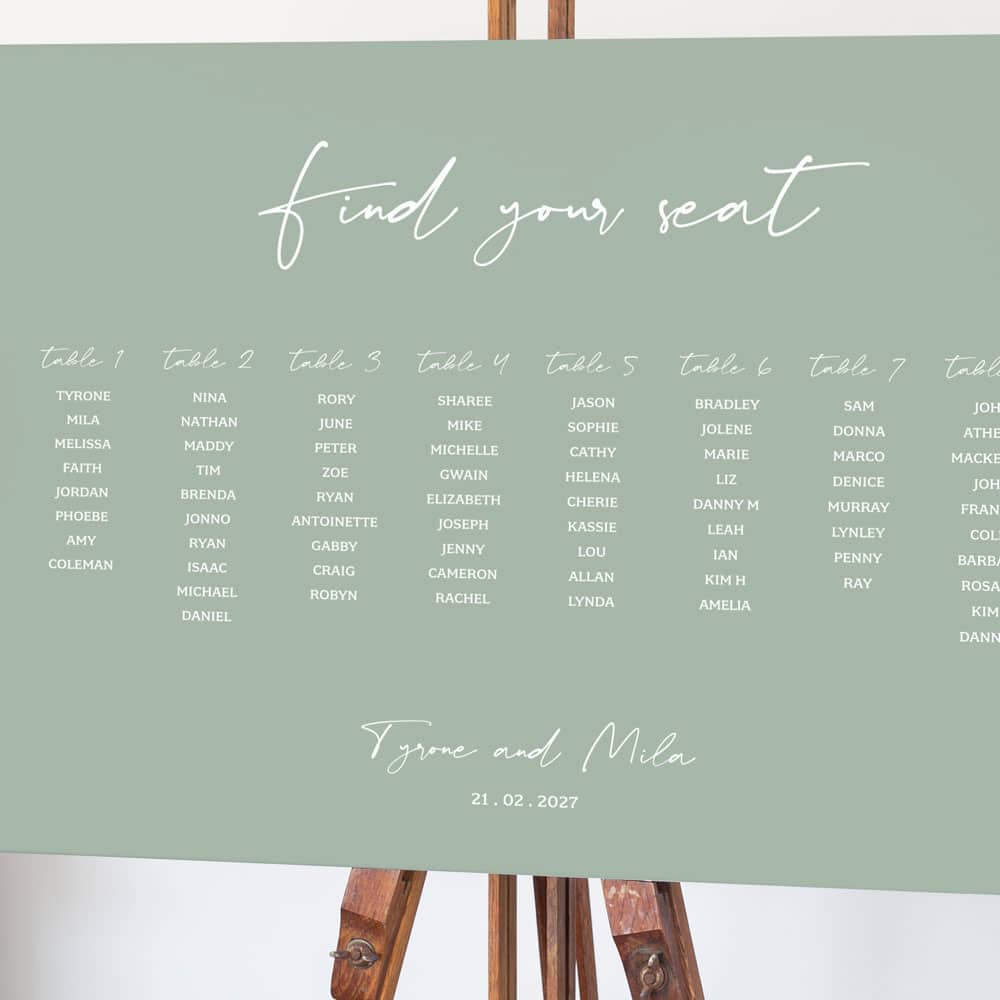 find your seat
table 1
TYRONE
MILA
MELISSA
FAITH
JORDAN
PHOEBE
AMY
COLEMAN
table 2
NINA
NATHAN
MADDY
TIM
BRENDA
JONNO
RYAN
ISAAC
MICHAEL
DANIEL
table 3
RORY
JUNE
PETER
ZOE
RYAN
ANTOINETTE
GABBY
CRAIG
ROBYN
table 4
SHAREE
MIKE
MICHELLE
GWAIN
ELIZABETH
JOSEPH
JENNY
CAMERON
RACHEL
table 5
JASON
SOPHIE
CATHY
HELENA
CHERIE
KASSIE
LOU
ALLAN
LYNDA
table 6
BRADLEY
JOLENE
MARIE
LIZ
DANNY M
LEAH
IAN
KIM H
AMELIA
table 7
SAM
DONNA
MARCO
DENICE
MURRAY
LYNLEY
PENNY
RAY
KIM
Tyrone and Mila
21 . 02 . 2027